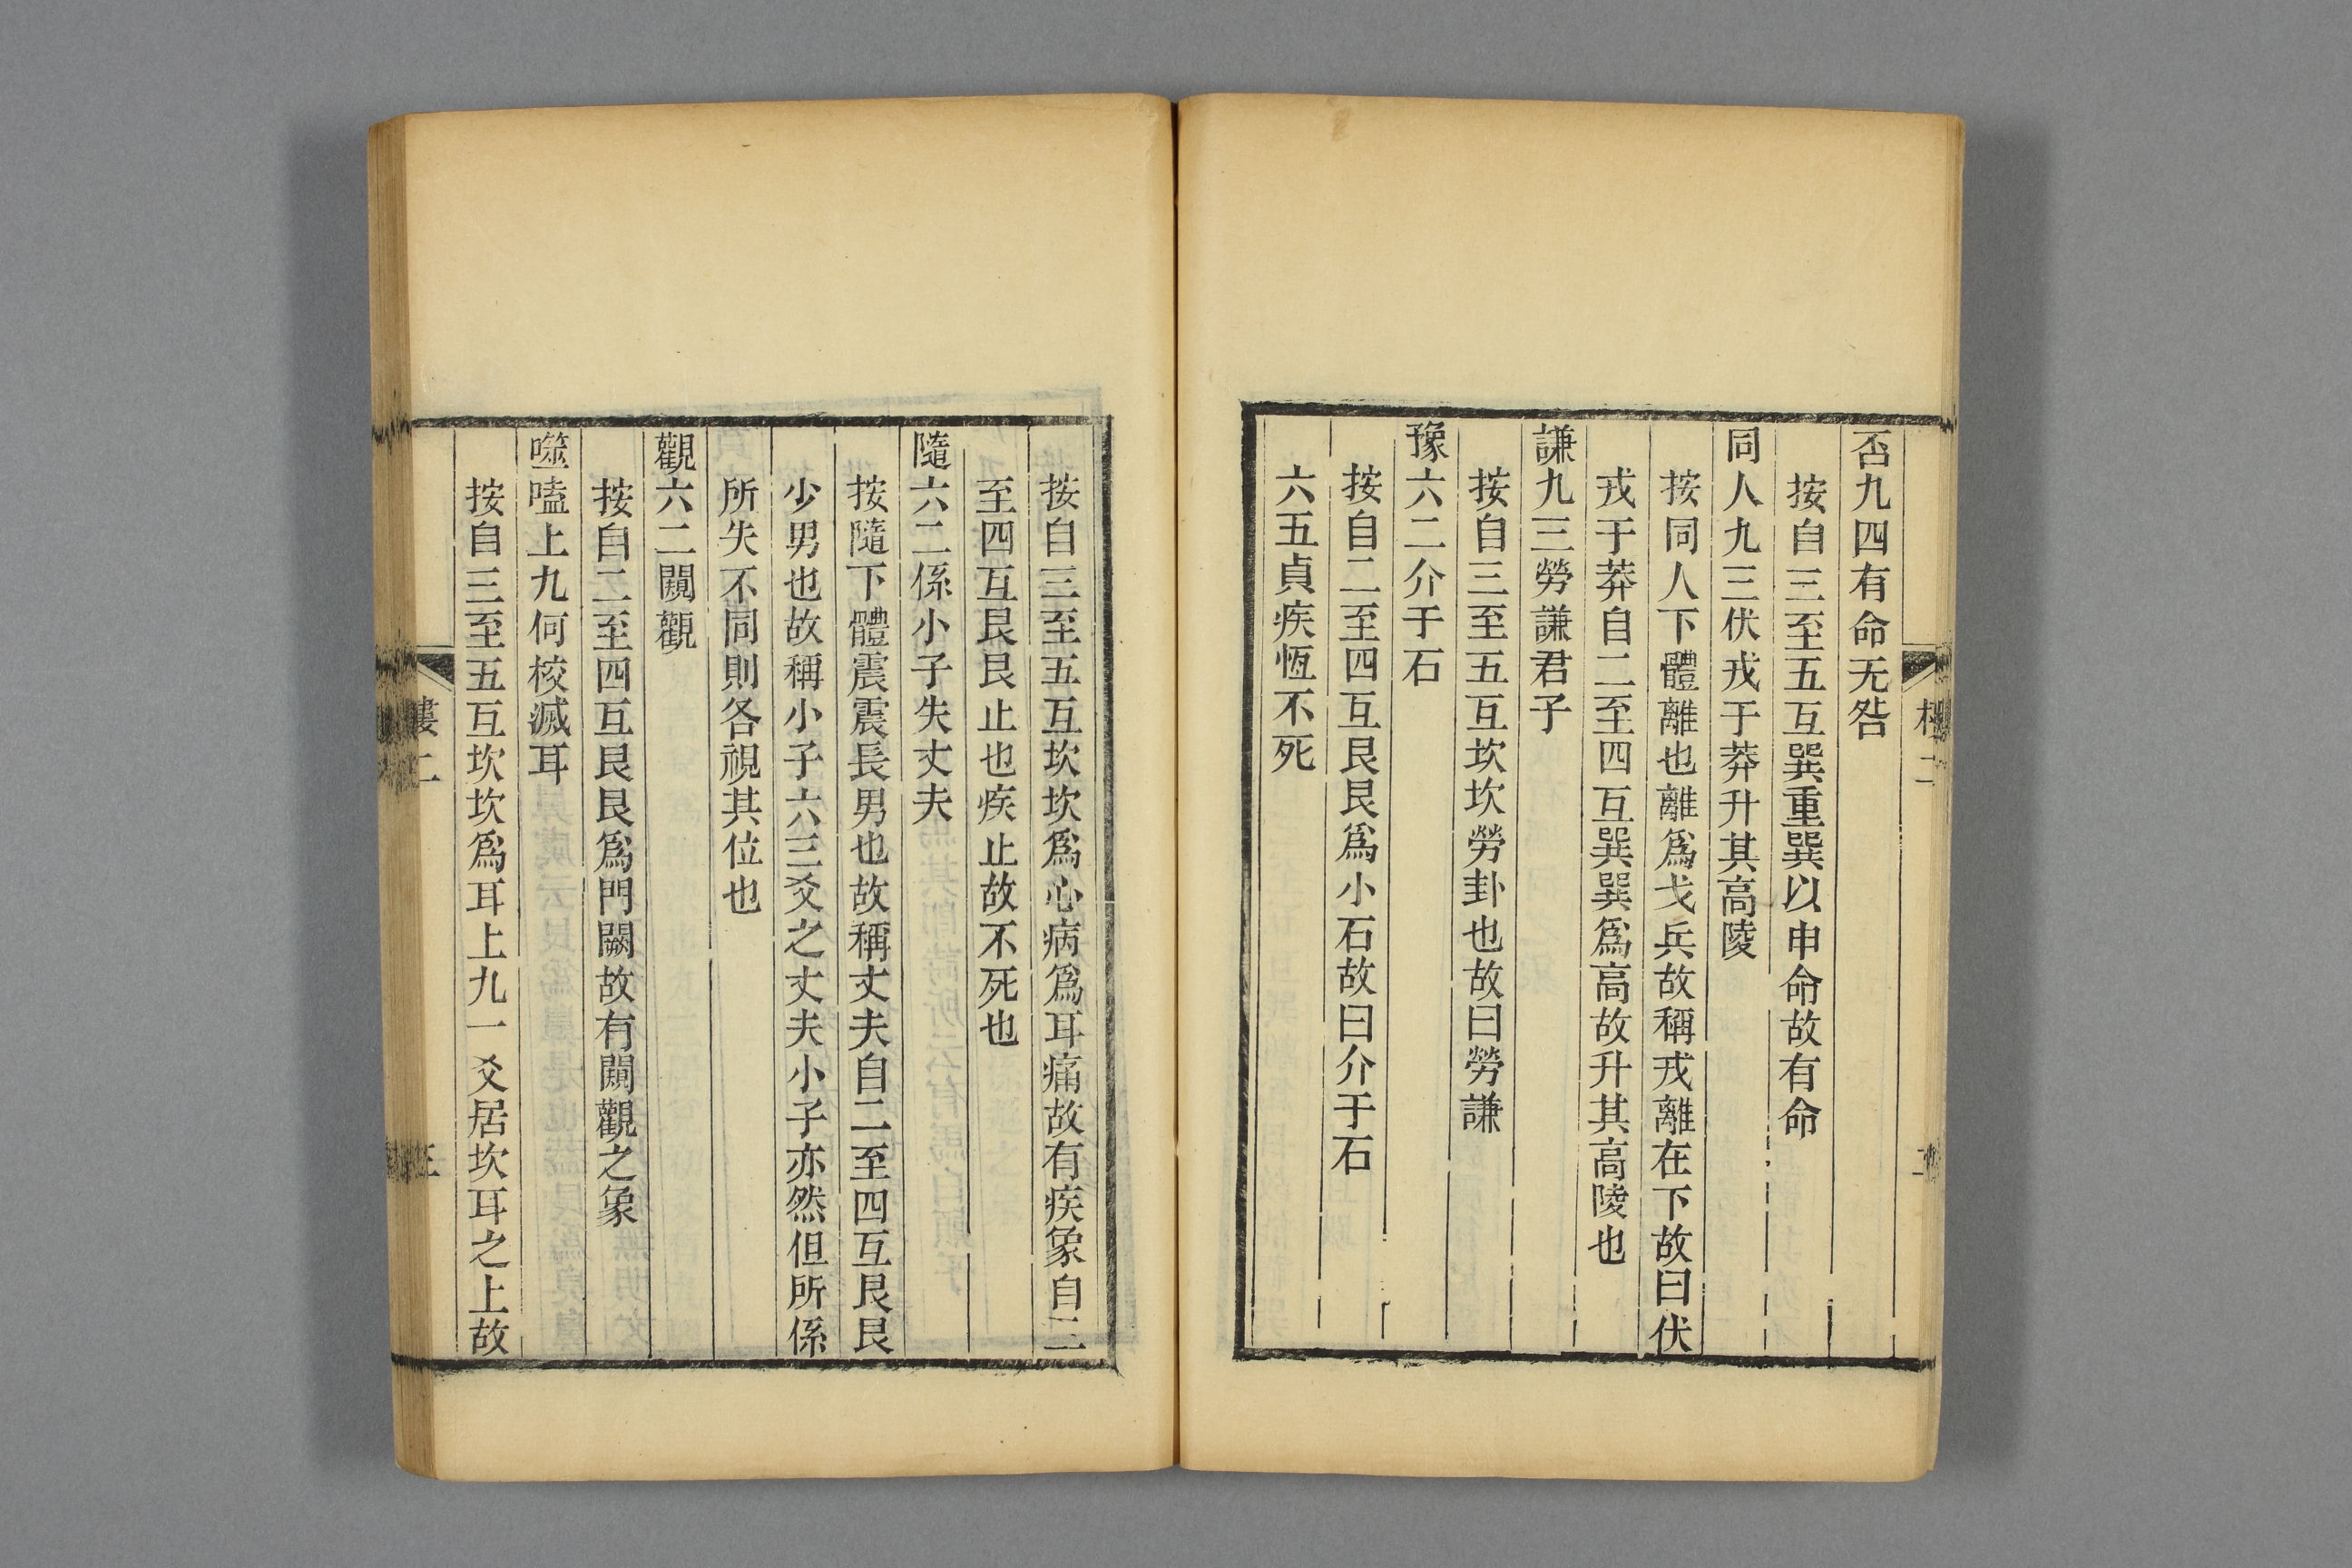 否九四有命无咎
按自三至五互巽重巽以申命故有命
同人九三伏戎于莽升其高陵
按同人下體離也離爲戈兵故稱戎離在下故曰伏
戎于莽自二至四互巽巽爲高故升其高陵也
謙九三勞謙君子
按自三至五互坎坎勞卦也故曰勞謙
豫六二介于石
按自二至四互艮艮爲小石故曰介于石
六五貞疾恆不死
按自三至五互坎坎爲心病爲耳痛故有疾象自二
至四互艮艮止也疾止故不死也
隨六二係小子失丈夫
按隨下體震震長男也故稱丈夫自二至四互艮艮
少男也故稱小子六三爻之丈夫小子亦然但所係
所失不同則各視其位也
觀六二闚觀
按自二至四互艮艮爲門闕故有闚觀之象
噬嗑上九何校滅耳
按自三至五互坎坎爲耳上九一爻居坎耳之上故